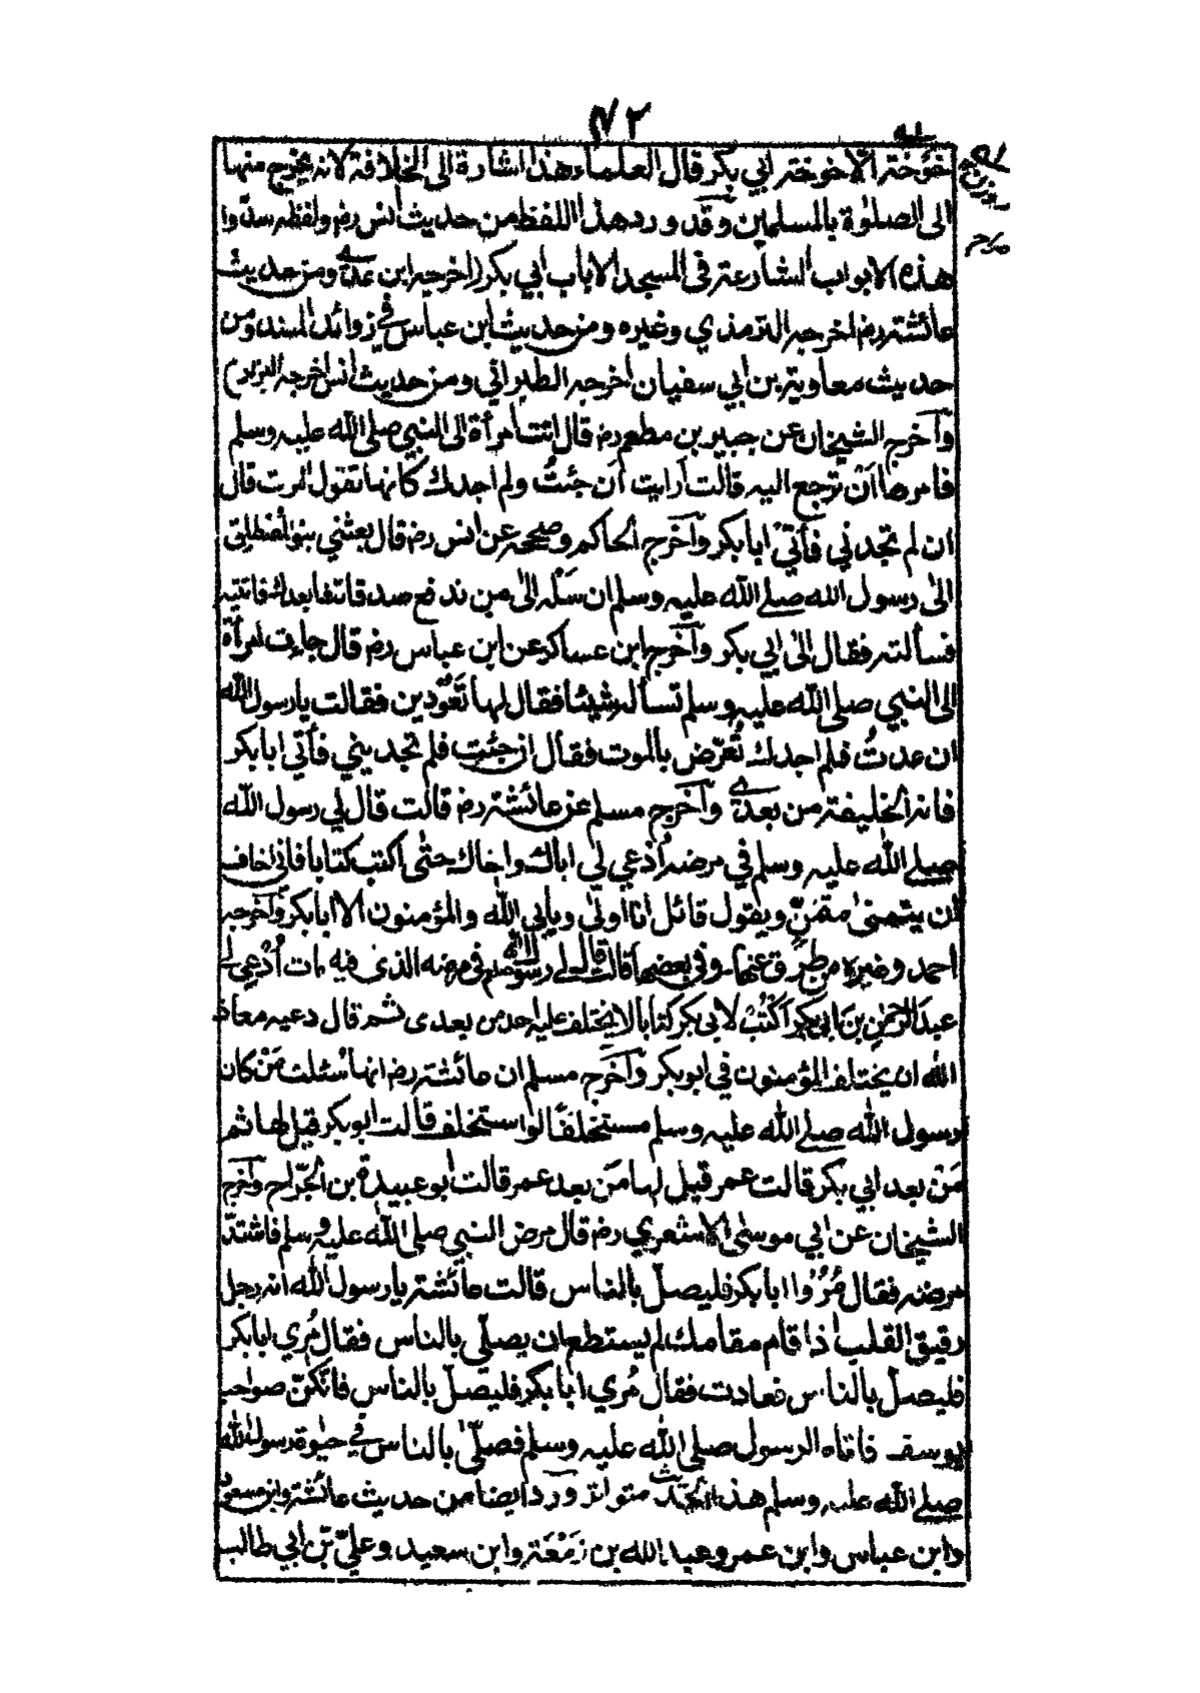 ٤٢
خوخة الا خوخة ابي بكر قال العلماء هذا اشارة الى الخلافة لانه يخرج منها
الى الصلوة بالمسلمين وقد ورد هذا اللفظ من حديث انس رض ولفظه سدّوا
هذه الابواب الشارعة فى المسجد الا باب ابي بكر اخرجه ابن عدي ومن حديث
عائشة رض اخرجه الترمذي وغيره ومن حديث ابن عباس في زوائد المسند ومن
حديث معاوية بن ابي سفيان اخرجه الطبراني ومن حديث انس اخرجه البزار
وآخرج الشيخان عن جبير بن مطعم رض قال اتت امرأة الى النبي صلى الله عليه وسلم
فامرها اَنْ ترجع اليه قالت اَرايت اَن جئتُ ولم اجدك كانها تقول الموت قال
ان لم تجدني فأتي ابا بكر وآخرج الحاكم وصححه عن انس رض قال بعثني بنو المصطلق
الىٰ رسول الله صلے الله عليه وسلم ان سَلْه الىٰ من ندفع صدقاتنا بعدك فاتيته
فسألته فقال الىٰ ابي بكر وآخرج ابن عساكر عن ابن عباس رض قال جاءت امرأة
الى النبي صلى الله عليه وسلم تسأله شيئا فقال لها تَعُوْدين فقالت يا رسول الله
ان عدتُ فلم اجدك تُعرّض بالموت فقال ان جئت فلم تجديني فأتي ابا بكر
فانه الخليفة من بعدي وآخرج مسلم عن عائشة رض قالت قال لي رسول الله
صلے الله عليه وسلم في مرضه اُدْعي لى اباك واخاك حتىٰ اكتب كتابا فانى اخاف
ان يتمنىٰ متمنّ ويقول قائل انا اولىٰ ويابى الله والمؤمنون الا ابا بكر وآخرجه
احمد وغيره من طرق عنها وفي بعضها قالت قال لے رسول الله صلم فى مرضه الذى فيه مات اُدْعِي لے
عبدَ الرحمٰن بنَ ابي بكر اَكتُبْ لابي بكر كتابا لا يختلف عليه احد من بعدى ثم قال دعيه معاذ
الله ان يختلف المؤمنون في ابو بكر وآخرج مسلم ان عائشة رض انها سُئلت مَنْ كان
رسول الله صلے الله عليه وسلم مستخلفاً لو استخلف قالت ابو بكر قيل لها ثم
مَنْ بعد ابي بكر قالت عمر قيل لها مَن بعد عمر قالت ابو عبيدة بن الجرّاح وآخرج
الشيخان عن ابي موسىٰ الاشعري رض قال مرض النبي صلى الله عليه وسلم فاشتدّ
مرضه فقال مُرُوْا ابا بكر فليصلّ بالناس قالت عائشة يا رسول الله انه رجل
رقيق القلب اذا قام مقامك لم يستطع ان يصلّي بالناس فقال مُري ابا بكر
فليصلّ بالناس فعادت فقال مُري ابا بكر فليصلّ بالناس فانكنّ صواحب
يوسف فاتاه الرسول صلى الله عليه وسلم فصلّىٰ بالناس في حيٰوة رسول الله
صلے الله عليه وسلم هذا الحديث متواتر ورد ايضا من حديث عائشة وابن مسعود
وابن عباس وابن عمر وعبد الله بن زَمْعَة وابن سعيد وعليّ بن ابي طالب